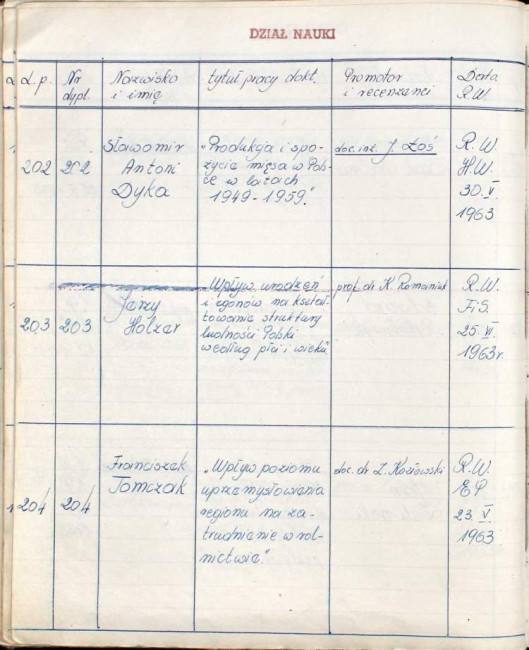 DZIAŁ NAUKI
L.p.
Nr
dypl.
Nazwisko
i imię
tytuł pracy dokt.
Promotor
i recenzenci
Data
R.W.
202
202
Sławomir
Antoni
Dyka
"Produkcja i spo-
życie mięsa w Pols-
ce w latach
1949-1959."
doc. inż. J. Łoś
R.W.
H.W.
30.V
1963
203
203
Jerzy
Holzer
Wpływ urodzeń
i zgonów na kształ-
towanie struktury
ludności Polski
według płci i wieku"
prof. dr K. Romaniuk
R.W.
FiS.
25.VI.
1963r.
204
204
Franciszek
Tomczak
"Wpływ poziomu
uprzemysłowienia
regionu na za-
trudnienie w rol-
nictwie."
doc. dr Z. Kozłowski
R.W.
EP
23.V.
1963